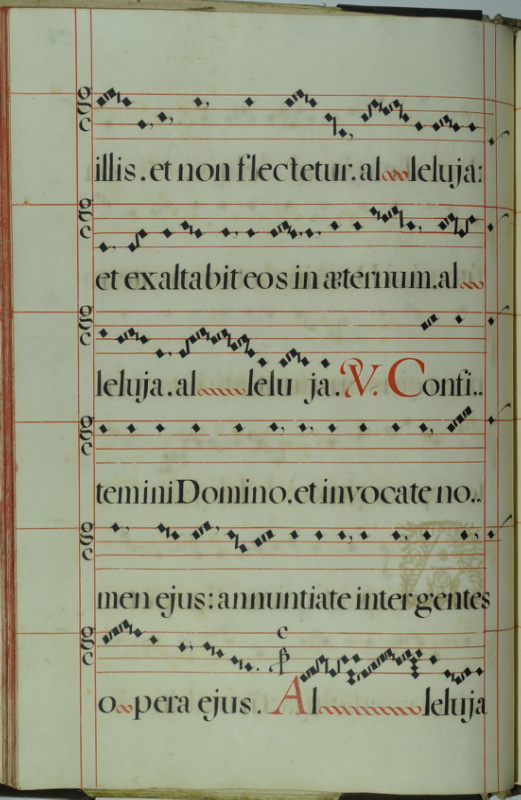 illis. et non flectetur, alleluja:
et exaltabit eos in æternum, al
leluja. alleluja. V. Confi..
temini Domino, et invocate no..
men ejus: annuntiate inter gentes
opera ejus. Alleluja